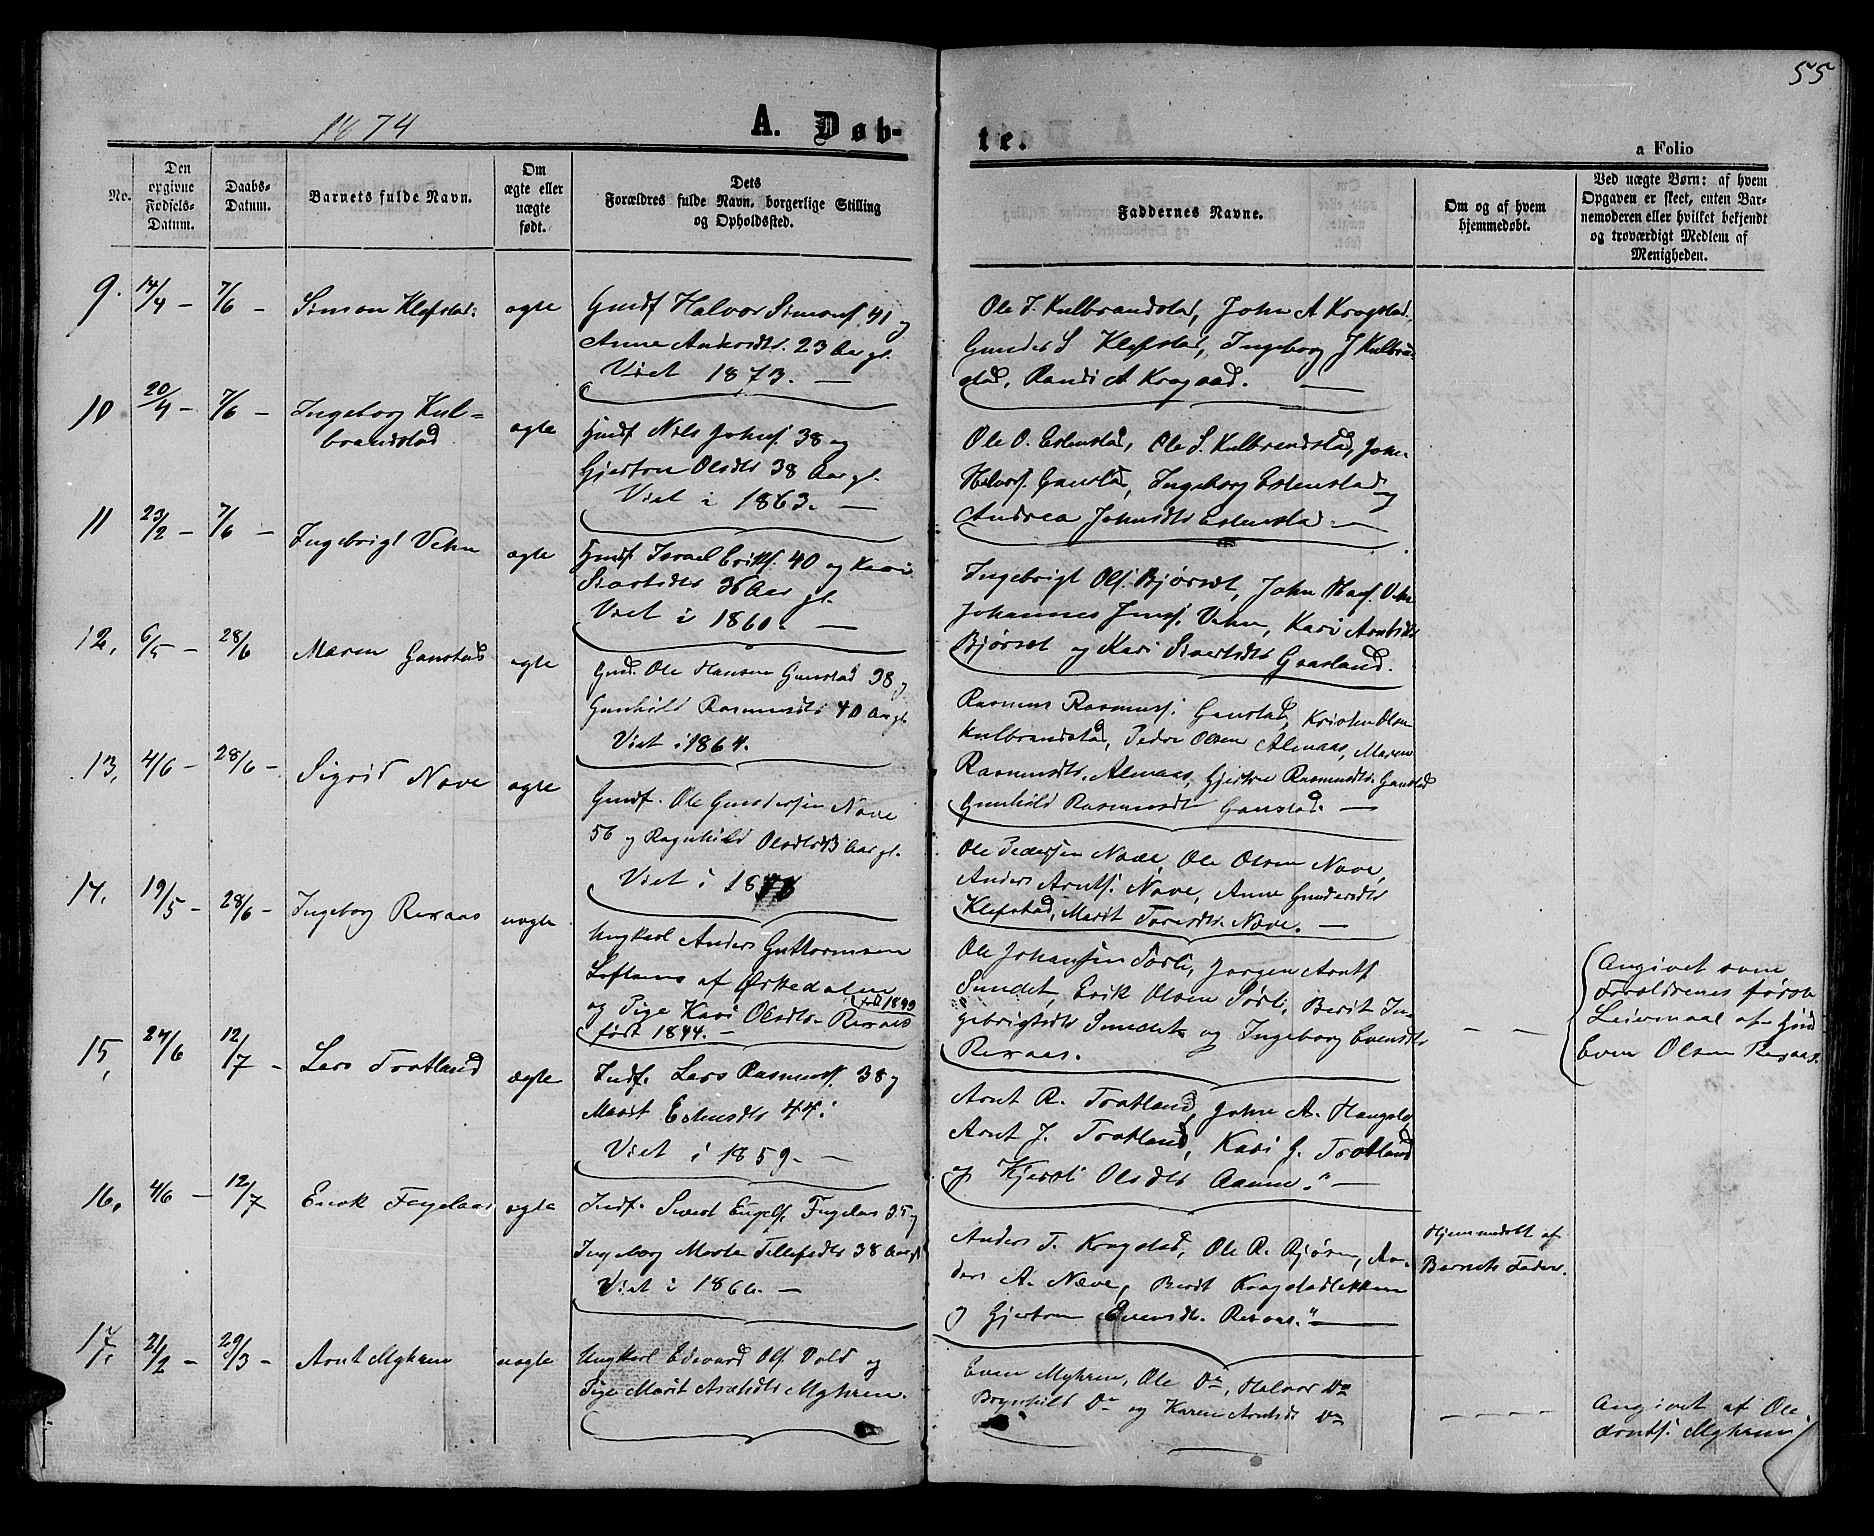 55
1874
A. Døb-
te.
a Folio
No.
Den
opgivne
Fødsels-
Datum.
Daabs-
Datum.
Barnets fulde Navn.
Om
ægte eller
uægte
født.
Dets
Forældres fulde Navn, borgerlige Stilling
og Opholdssted.
Faddernes Navne.
Om og af hvem
hjemmedøbt.
Ved uægte Børn: af hvem
Opgaven er skeet, enten Bar-
nemoderen eller hvilket bekjendt
og troværdigt Medlem af
Menigheden.
9. 14/4 – 7/6 – Simon Klefstad: ægte
Gmdf Halvor Simons. 41 og
Anne Andersdtr. 23 Aar gl.
Viet 1873. —
Ole S. Kulbrandstad, John A Kragstad,
Gunder S Klefstad, Ingeborg J Kulbran-
stad, Randi A Kragstad. —
10 20/4 – 7/6 – Ingeborg Kul=
brandstad ægte
Gmdf Nils Johns. 38 og
Gjertru Olsdtr 38 Aar gl.
Viet i 1863. —
Ole O. Estenstad, Ole S. Kulbrandstad, John
Halvors. Ganstad, Ingeborg Estenstad og
Andrea Johnsdtr Estenstad. —
11 23/2 – 7/6 – Ingebrigt Vehn ægte
Gmdf Israel Eriks. 40 og Kari
Sivertsdtr 36 Aar gl.
Viet i 1860. —
Ingebrigt Ols. Bjørset, John Vehn
Johannes Jons. Vehn, Kari Arntsdtr
Bjørset og Kari Sivertsdtr Gaasland.
12, 6/5 – 28/6 Maren Ganstad ægte
Gmd. Ole Hansen Ganstad 38 og
Gunhild Rasmusdtr 40 Aar gl.
Viet i 1864.
Rasmus Rasmuss. Ganstad, Kristen Olsen
Kulbrandstad, Peder Olsen Almaas, Maren
Rasmusdtr. Almaas, Gjertru Rasmusdtr. Ganstad
Gunhild Rasmusdtr Ganstad. —
13, 4/6 – 28/6 – Sigrid Nave ægte
Gmdf. Ole Gundersen Nave
56 og Ragnhild Olsdtr 43 Aar gl.
Viet i 18
Ole Pedersen Nave, Ole Olsen Nave,
Anders Arnts. Nave, Anne Gundersdtr
Klefstad, Marit Toresdtr. Nave. —
14. 19/5 – 28/6 – Ingeborg Rexaas uægte
Ungkarl Anders Guttormsen
Loftaas af Ørkedalen (født 1849
og Pige Kari Olsdtr. Rexaas
født 1844. —
Ole Johansen Sørli, Jørgen Arnts
Sundet, Erik Olsen Sørli, Berit In-
gebrigtsdtr Sundet og Ingeborg Evensdtr
Rexaas.
— —
Angivet som
Foraldrenes første
Leiermaal af Gmd
Even Olsen Rexaas.
15, 24/6 12/7 – Lars Tratland ægte
Indf. Lars Rasmuss. 38 og
Marit Estensdtr 44.
Viet i 1859. —
Arnt R. Tratland, John A. Haugstad,
Arnt J. Tratland, Kari J. Tratland
og Kjersti Olsdtr Aanne." —
16. 4/6 – 12/7 Enok Fugelaas ægte
Indf. Sivert Engels. Fugelaas 35 og
Ingeborg Marta Tellefsdtr 38 Aar gl
Viet i 1866. —
Anders T. Kragstad, Ole R. Bjøren, An-
ders A. Næve, Berit Kragstadløkken
og Gjertru Evensdtr. Rexaas." —
Hjemmedøbt af
Barnets Fader.
17, 21/2 – 29/3 – Arnt Myhren uægte
Ungkarl Edevard Ols. Vold og
Pige Marit Arntsdtr Myhren.
Even Myhren, Ole Do, Halvor Do
Brynhild Do og Karen Arntsdtr Do
— — — —
Angivet af Ole
Arnts. Myhren